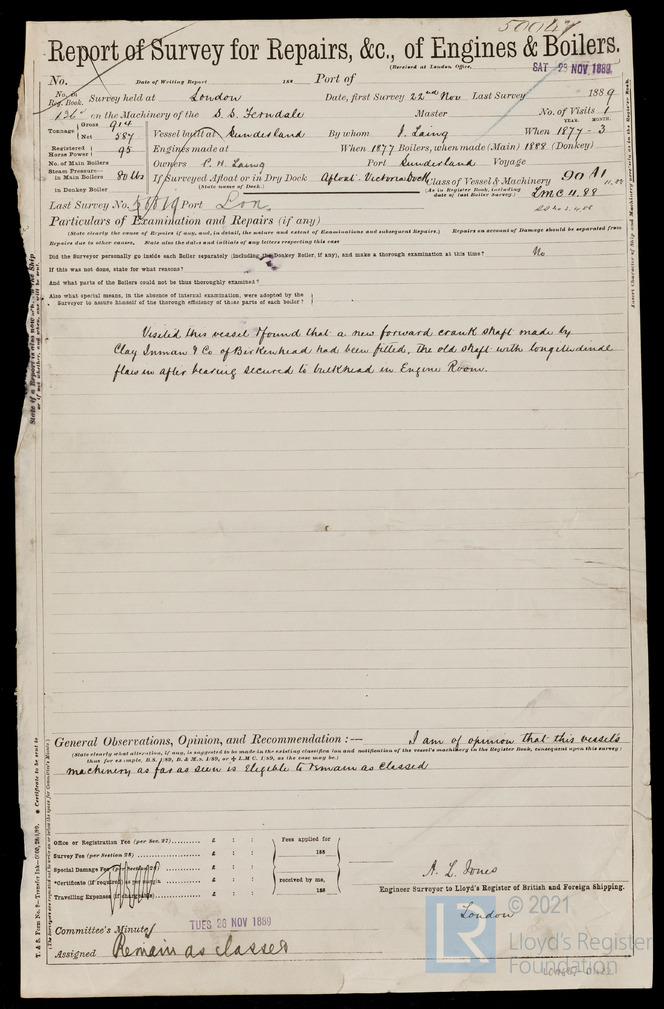 50047
Report of Survey for Repairs, &c., of Engines & Boilers.
(Received at London Office,
SAT 23 NOV 1889
No. Date of Writing Report 188 Port of
No. in Reg. Book. Survey held at London Date, first Survey 22nd Nov Last Survey 1889
136 on the Machinery of the S.S. Ferndale Master No. of Visits 1
Tonnage Gross 914 Net 587 Vessel built at Sunderland By whom J. Laing When 1877-3 YEAR. MONTH.
Registered Horse Power 95 Engines made at When 1877 Boilers, when made (Main) 1888 (Donkey)
No. of Main Boilers Owners P. H. Laing Port Sunderland Voyage
Steam Pressure in Main Boilers 80 lbs If Surveyed Afloat or in Dry Dock Afloat. Victoria Dock Class of Vessel & Machinery 90 A1 11.88
in Donkey Boiler (State name of Dock.) (As in Register Book, including date of last Boiler Survey.) LMC 11.88
Last Survey No. Port Lon.
Particulars of Examination and Repairs (if any)
(State clearly the cause of Repairs if any, and, in detail, the nature and extent of Examinations and subsequent Repairs.) Repairs on account of Damage should be separated from
Repairs due to other causes. State also the dates and initials of any letters respecting this case
Did the Surveyor personally go inside each Boiler separately (including the Donkey Boiler, if any), and make a thorough examination at this time? No
If this was not done, state for what reasons?
And what parts of the Boilers could not be thus thoroughly examined?
Also what special means, in the absence of internal examination, were adopted by the
Surveyor to assure himself of the thorough efficiency of those parts of each boiler?
Visited this vessel & found that a new forward crank shaft made by
Clay Inman & Co of Birkenhead had been fitted, the old shaft with longitudinal
flaw in after bearing secured to bulkhead in Engine Room.
General Observations, Opinion, and Recommendation :— I am of opinion that this vessels
(State clearly what alteration, if any, is suggested to be made in the existing classification and notification of the vessel's machinery in the Register Book, consequent upon this survey:
thus for example, B.S. 1/89, B. & M.S. 1/89, or L.M.C. 1/89, as the case may be.)
machinery as far as seen is Eligible to remain as Classed
Office or Registration Fee (per Sec. 27) £ : : Fees applied for
Survey Fee (per Section 28) £ : : 188
Special Damage Fee (per Section 28) £ : :
*Certificate (if required) as per margin £ : : received by me,
Travelling Expenses (if chargeable) £ : : 188
A. L. Jones
Engineer Surveyor to Lloyd's Register of British and Foreign Shipping.
London
Committee's Minute TUES 26 NOV 1889
Assigned Remain as classed
LR © 2021
Lloyd's Register
Foundation